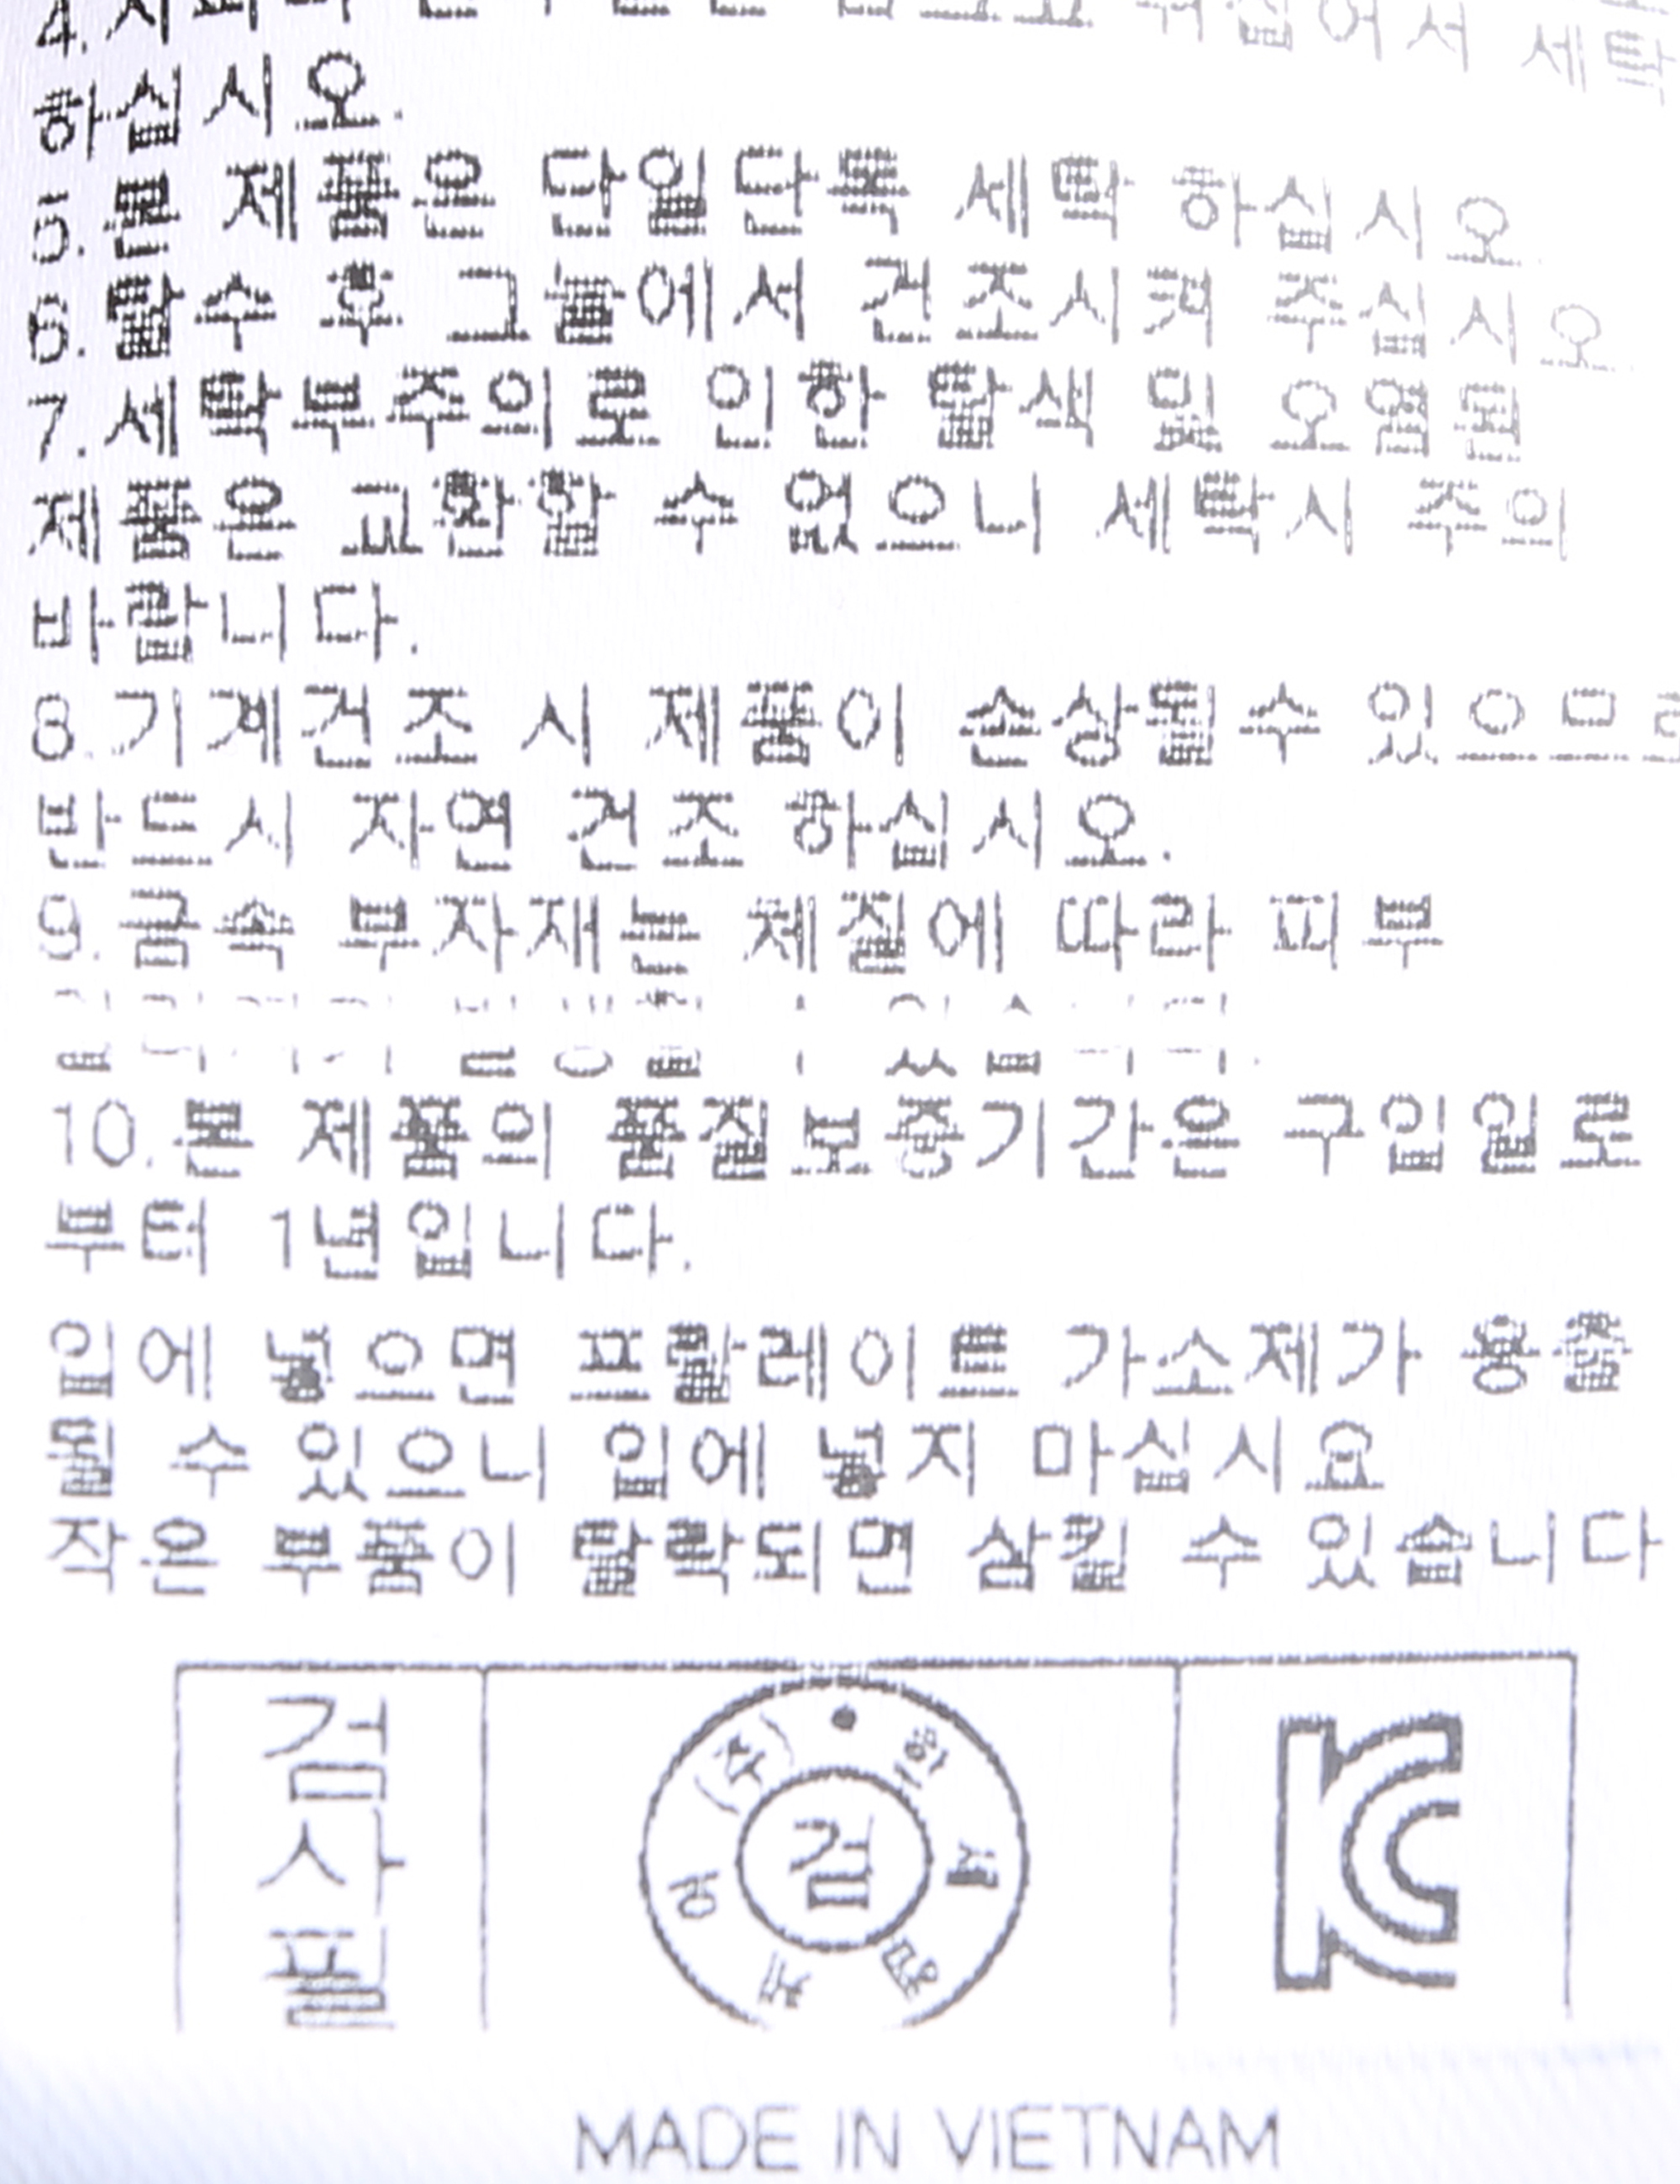 4. 뒤집어서 세탁
하십시오.
5. 본 제품은 단일단독 세탁 하십시오.
6. 탈수 후 그늘에서 건조시켜 주십시오.
7. 세탁부주의로 인한 탈색 및 오염된
제품은 교환할 수 없으니 세탁시 주의
바랍니다.
8. 기계건조 시 제품이 손상될수 있으므로
반드시 자연 건조 하십시오.
9. 금속 부자재는 체질에 따라 피부
10. 본 제품의 품질보증기간은 구입일로
부터 1년입니다.
입에 넣으면 프탈레이트 가소제가 용출
될 수 있으니 입에 넣지 마십시요
작은 부품이 탈락되면 삼킬 수 있습니다
검사필
검
KC
MADE IN VIETNAM